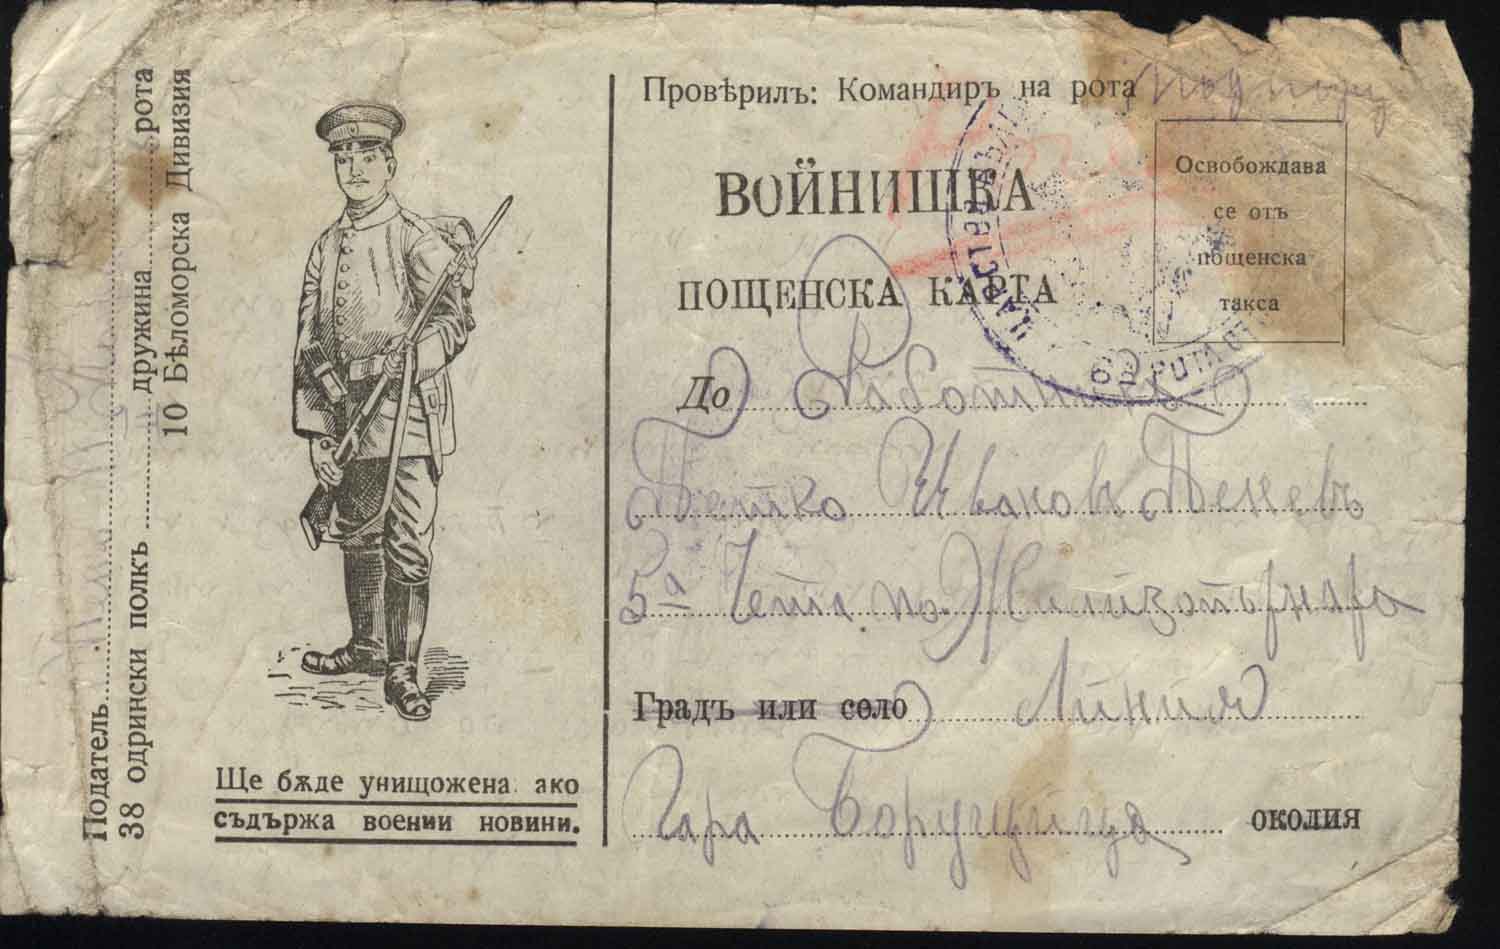 Провѣрилъ: Командиръ на рота
ВОЙНИШКА
ПОЩЕНСКА КАРТА
Освобождава
се отъ
пощенска
такса
До Работникъ
Петко Ивановъ Пеневъ
5а Чета по
Градъ или село Линия
Гара Борущица околия
Податель
38 одрински полкъ дружина рота
10 Бѣломорска Дивизия
Ще бѫде унищожена ако
съдържа военни новини.